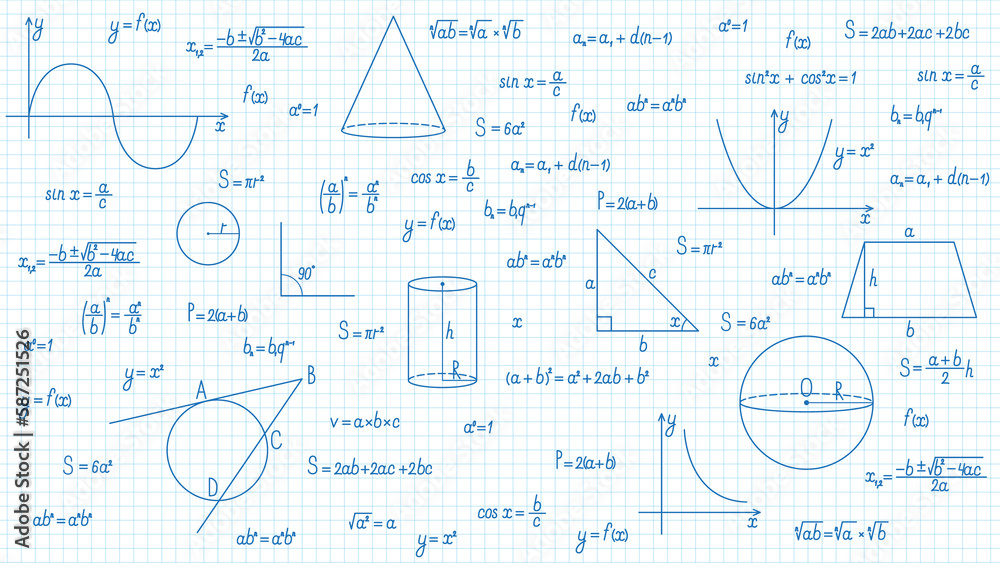 y
y = f(x)
x₁,₂ = -b ± √b² - 4ac / 2a
ⁿ√ab = ⁿ√a × ⁿ√b
aₙ = a₁ + d(n-1)
a⁰ = 1
f(x)
S = 2ab + 2ac + 2bc
sin x = a/c
sin²x + cos²x = 1
sin x = a/c
f(x)
a⁰ = 1
f(x)
abⁿ = aⁿbⁿ
bₙ = b₁qⁿ⁻¹
x
S = 6a²
y
y = x²
sin x = a/c
S = πr²
(a/b)ⁿ = aⁿ/bⁿ
cos x = b/c
aₙ = a₁ + d(n-1)
aₙ = a₁ + d(n-1)
bₙ = b₁qⁿ⁻¹
P = 2(a+b)
x
y = f(x)
r
a
x₁,₂ = -b ± √b² - 4ac / 2a
90°
abⁿ = aⁿbⁿ
S = πr²
a
c
abⁿ = aⁿbⁿ
h
(a/b)ⁿ = aⁿ/bⁿ
P = 2(a+b)
S = πr²
h
x
x
S = 6a²
b
b
a⁰ = 1
bₙ = b₁qⁿ⁻¹
x
y = x²
B
R
(a+b)² = a² + 2ab + b²
S = a+b/2 h
A
O
R
= f(x)
v = a×b×c
a⁰ = 1
y
f(x)
C
S = 6a²
S = 2ab + 2ac + 2bc
P = 2(a+b)
x₁,₂ = -b ± √b² - 4ac / 2a
D
abⁿ = aⁿbⁿ
√a² = a
cos x = b/c
x
abⁿ = aⁿbⁿ
y = x²
y = f(x)
ⁿ√ab = ⁿ√a × ⁿ√b
Adobe Stock | #587251526